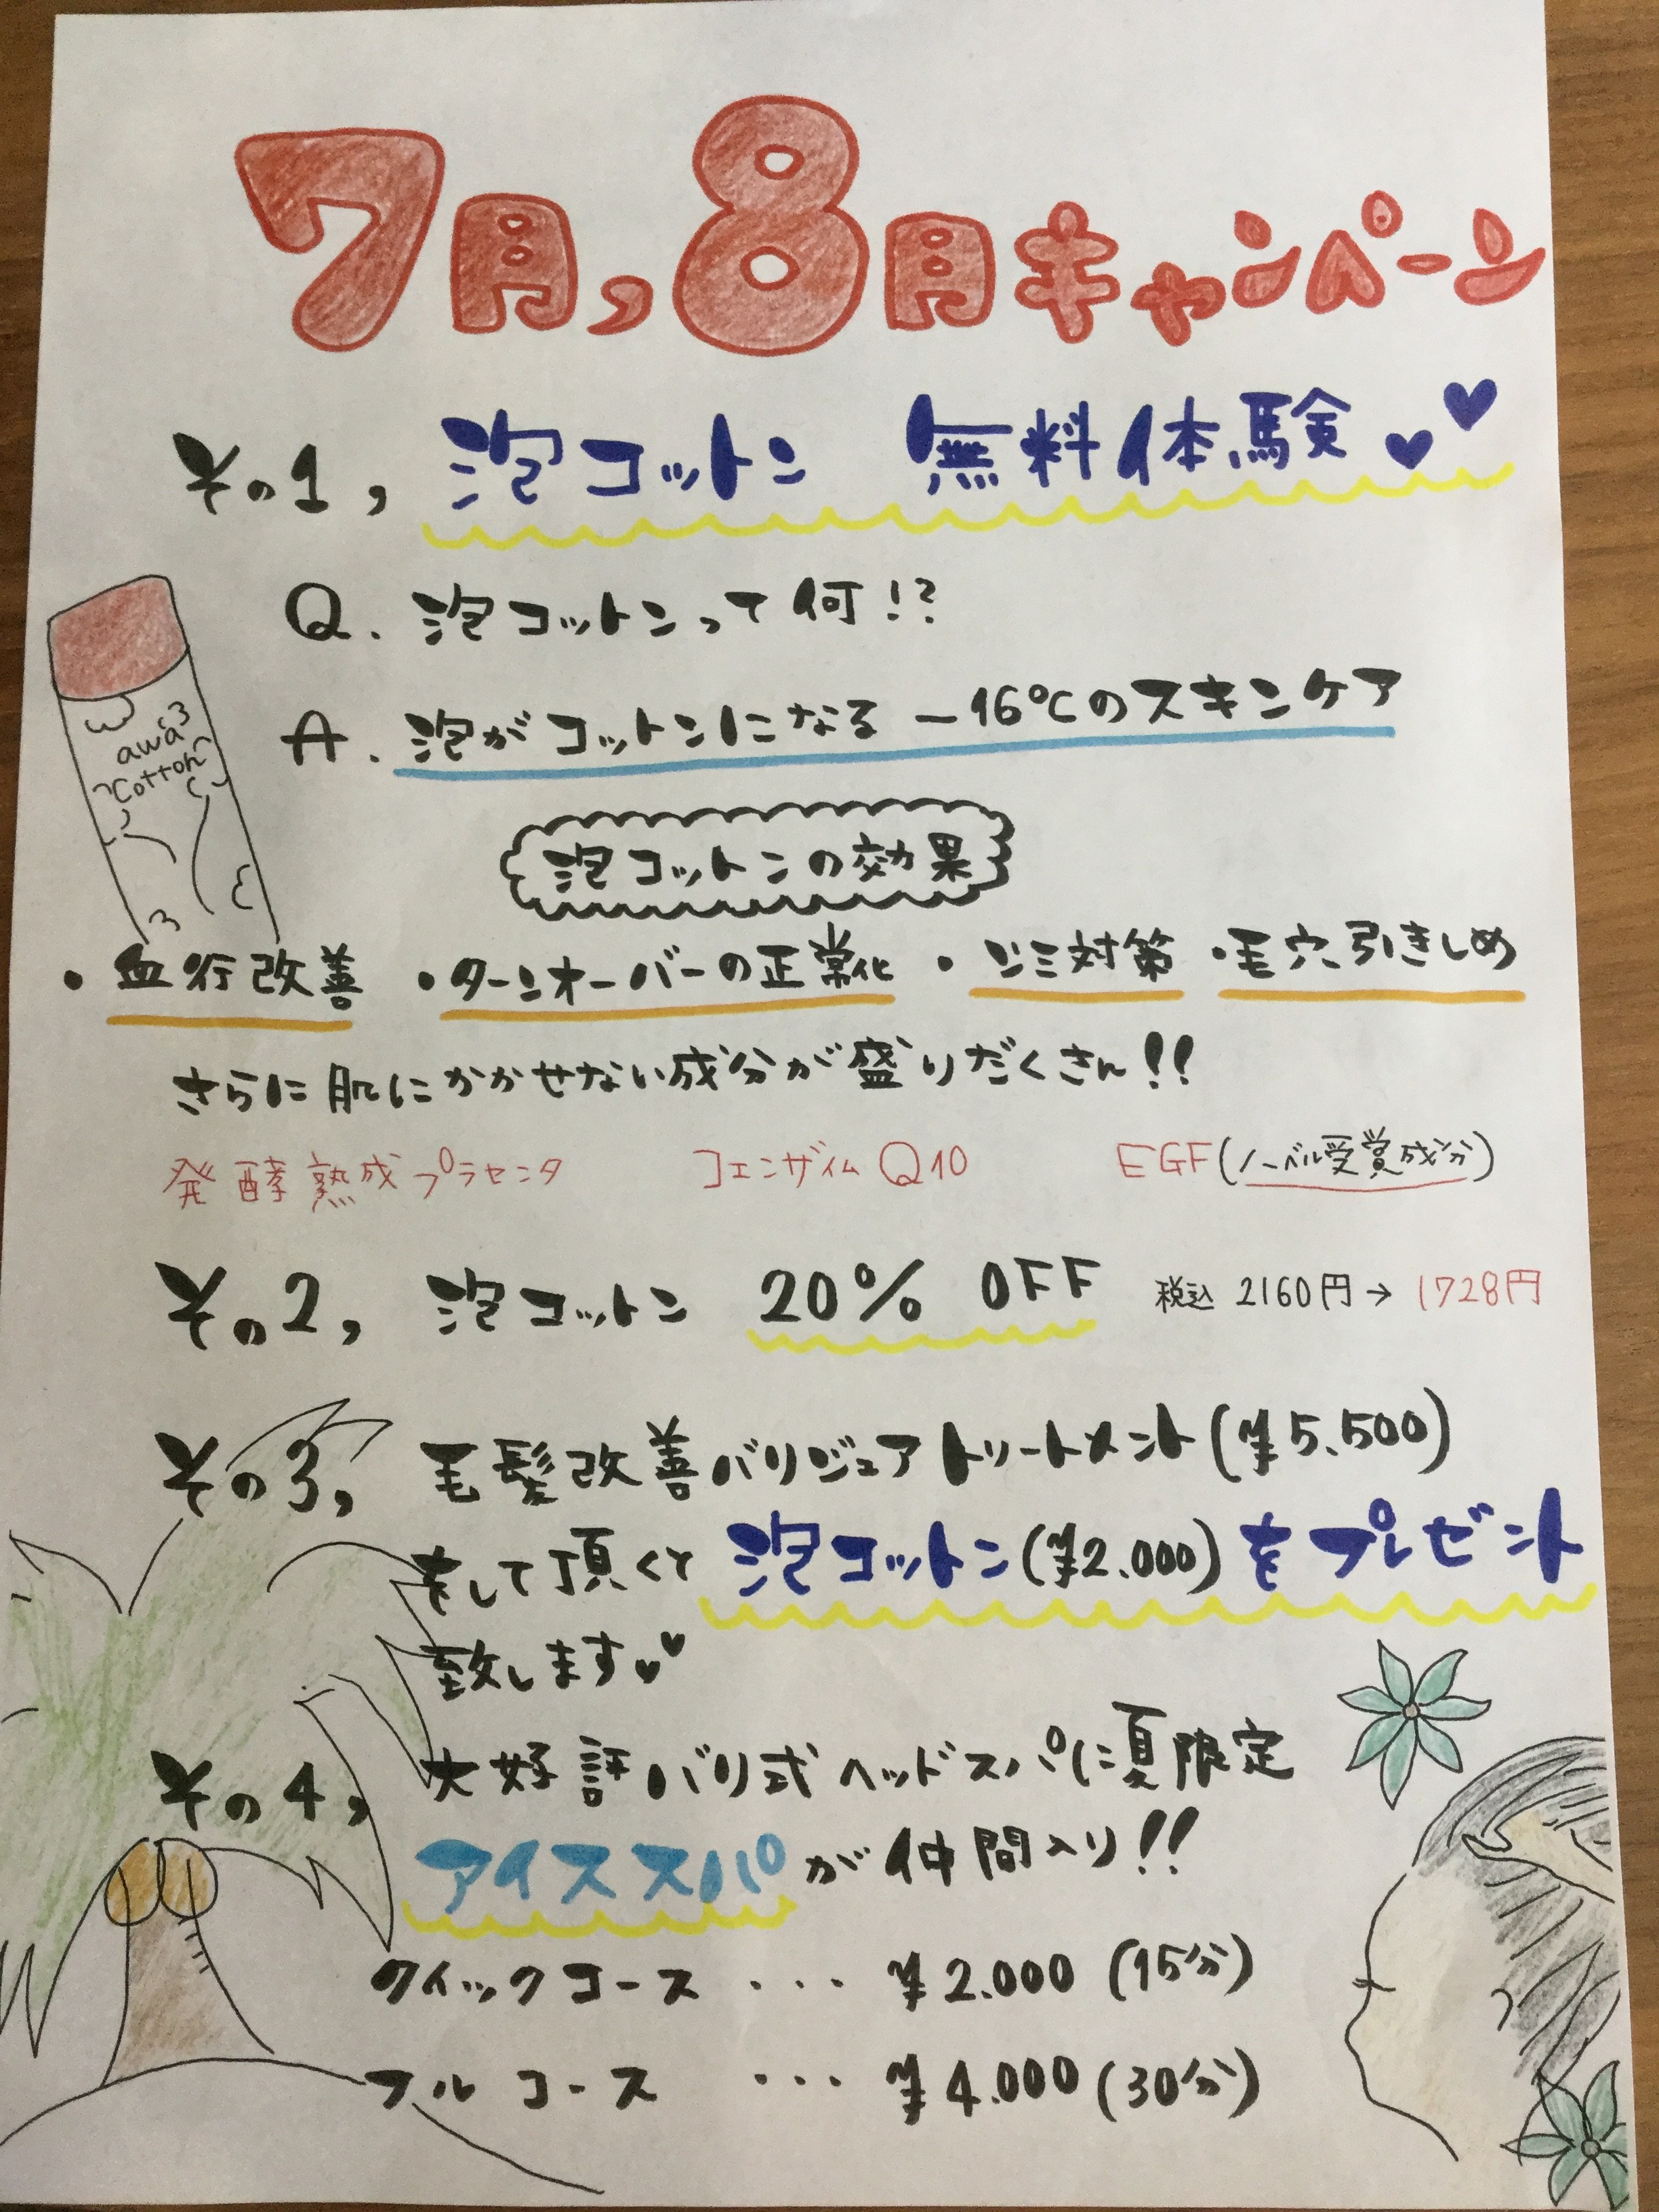 7月,8月キャンペーン
その1, 泡コットン 無料体験
Q. 泡コットンって何!?
A. 泡がコットンになる −16℃のスキンケア
awa
Cotton
泡コットンの効果
・血行改善 ・ターンオーバーの正常化 ・シミ対策 ・毛穴引きしめ
さらに肌にかかせない成分が盛りだくさん!!
発酵熟成プラセンタ コエンザイムQ10 EGF(ノーベル受賞成分)
その2, 泡コットン 20% OFF 税込 2160円→1728円
その3, 毛髪改善バリジュアトリートメント(¥5.500)
をして頂くと 泡コットン(¥2.000)をプレゼント
致します
その4, 大好評バリ式ヘッドスパに夏限定
アイススパが仲間入り!!
クイックコース ・・・ ¥2.000 (15分)
フルコース ・・・ ¥4.000 (30分)